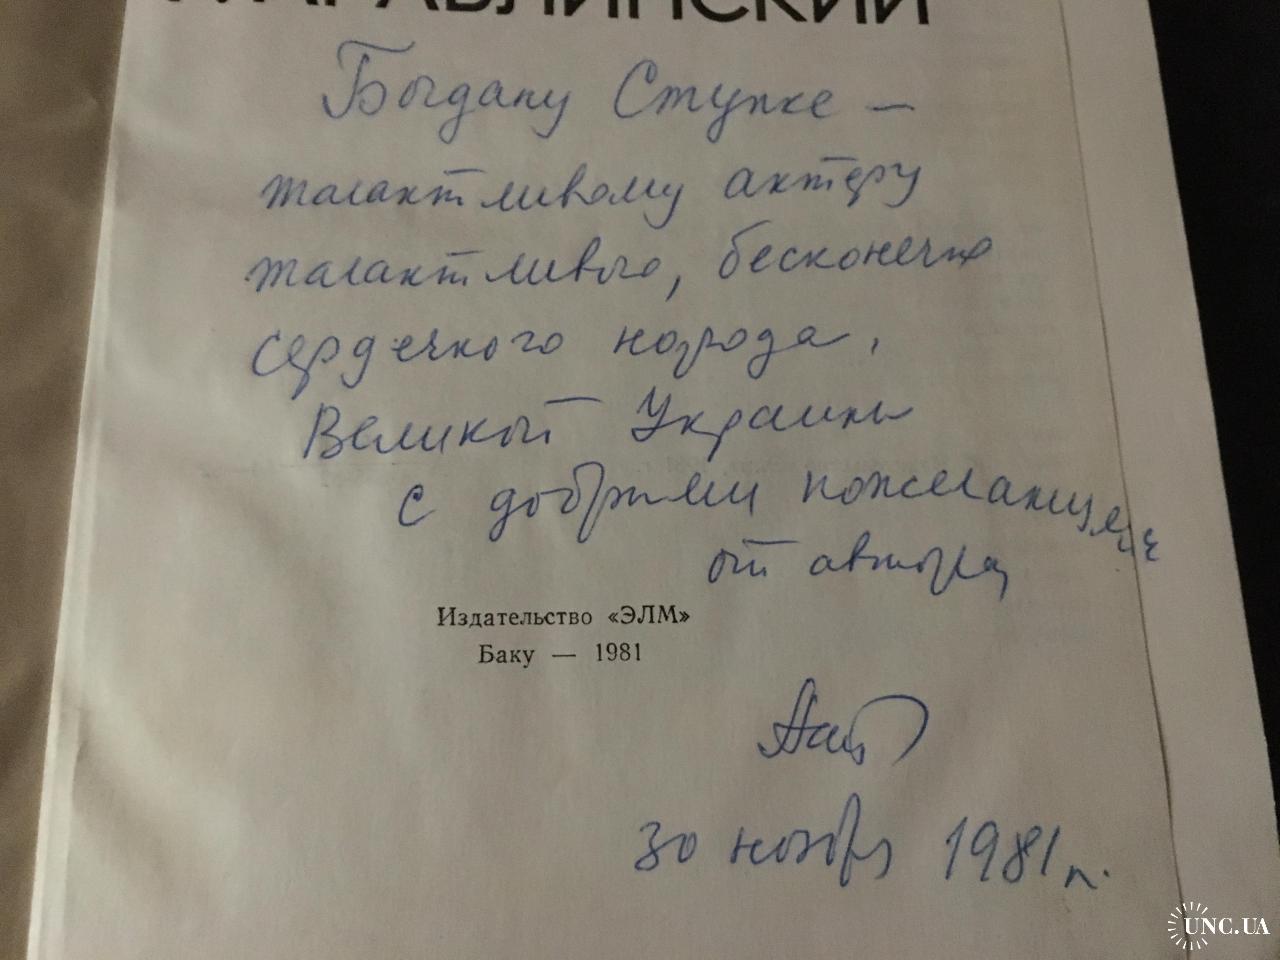 АРАБЛИНСКИЙ
Богдану Ступке —
талантливому актеру
талантливого, бесконечно
сердечного народа,
Великой Украины
с добрыми пожеланиями
от автора
Издательство «ЭЛМ»
Баку — 1981
30 ноября 1981 г.
UNC.UA